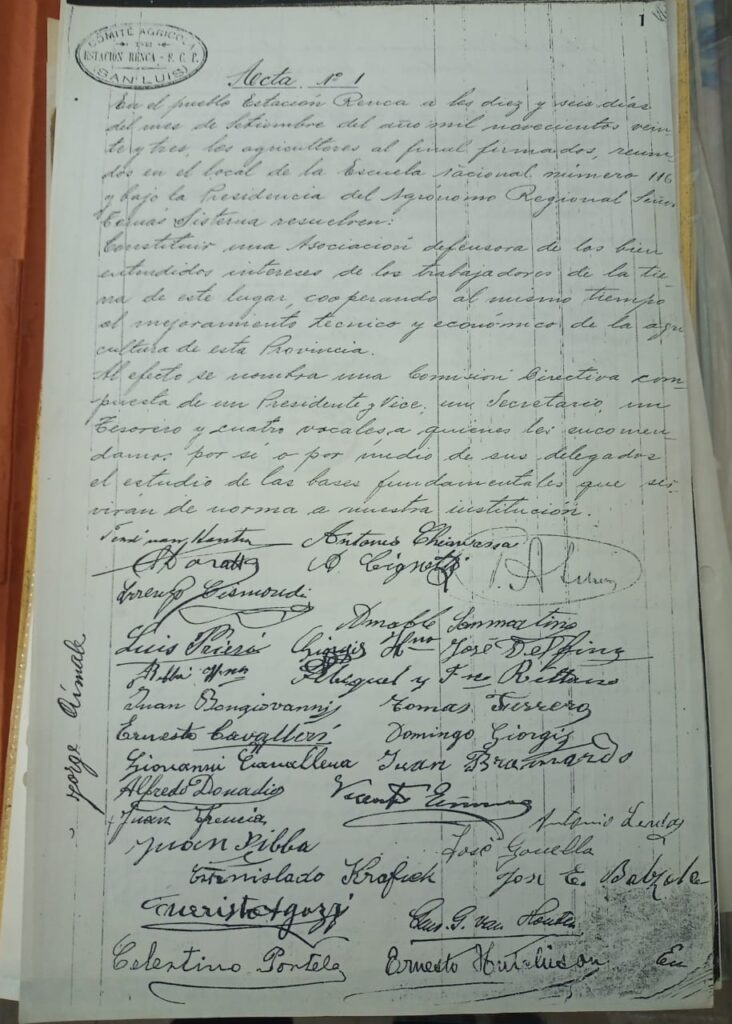 1
COMITÉ AGRICOLA
ESTACIÓN RENCA - F. C. P.
(SAN LUIS)
Acta Nº 1
En el pueblo Estación Renca a los diez y seis días
del mes de Setiembre del año mil novecientos vein-
te y tres, los agricultores al final firmados, reuni-
dos en el local de la Escuela Nacional número 116
y bajo la Presidencia del Agrónomo Regional Señor
Sisterna resuelven:
Constituir una Asociación defensora de los bien
entendidos intereses de los trabajadores de la tie-
rra de este lugar, cooperando al mismo tiempo
al mejoramiento técnico y económico de la agri
cultura de esta Provincia.
Al efecto se nombra una Comisión Directiva com-
puesta de un Presidente y Vice, un Secretario, un
Tesorero y cuatro vocales a quienes les encomen-
damos por si o por medio de sus delegados
el estudio de las bases fundamentales que ser-
virán de norma a nuestra institución.
Antonio Chiavassa
Cismondi
Amable Sanmartino
Luis Hno José Delfino
Hnos Miguel y Fco
Juan Bongiovanni Tomas Ferrero
Ernesto Cavalleri Domingo Giorgis
Giovanni Cavallera Juan Bramardo
Alfredo Donadio Vicente
Juan Antonio
Juan Ribba José Gonella
Estanislado Krafick José E.
G. van Houten
Celestino Portela Ernesto En
Jorge